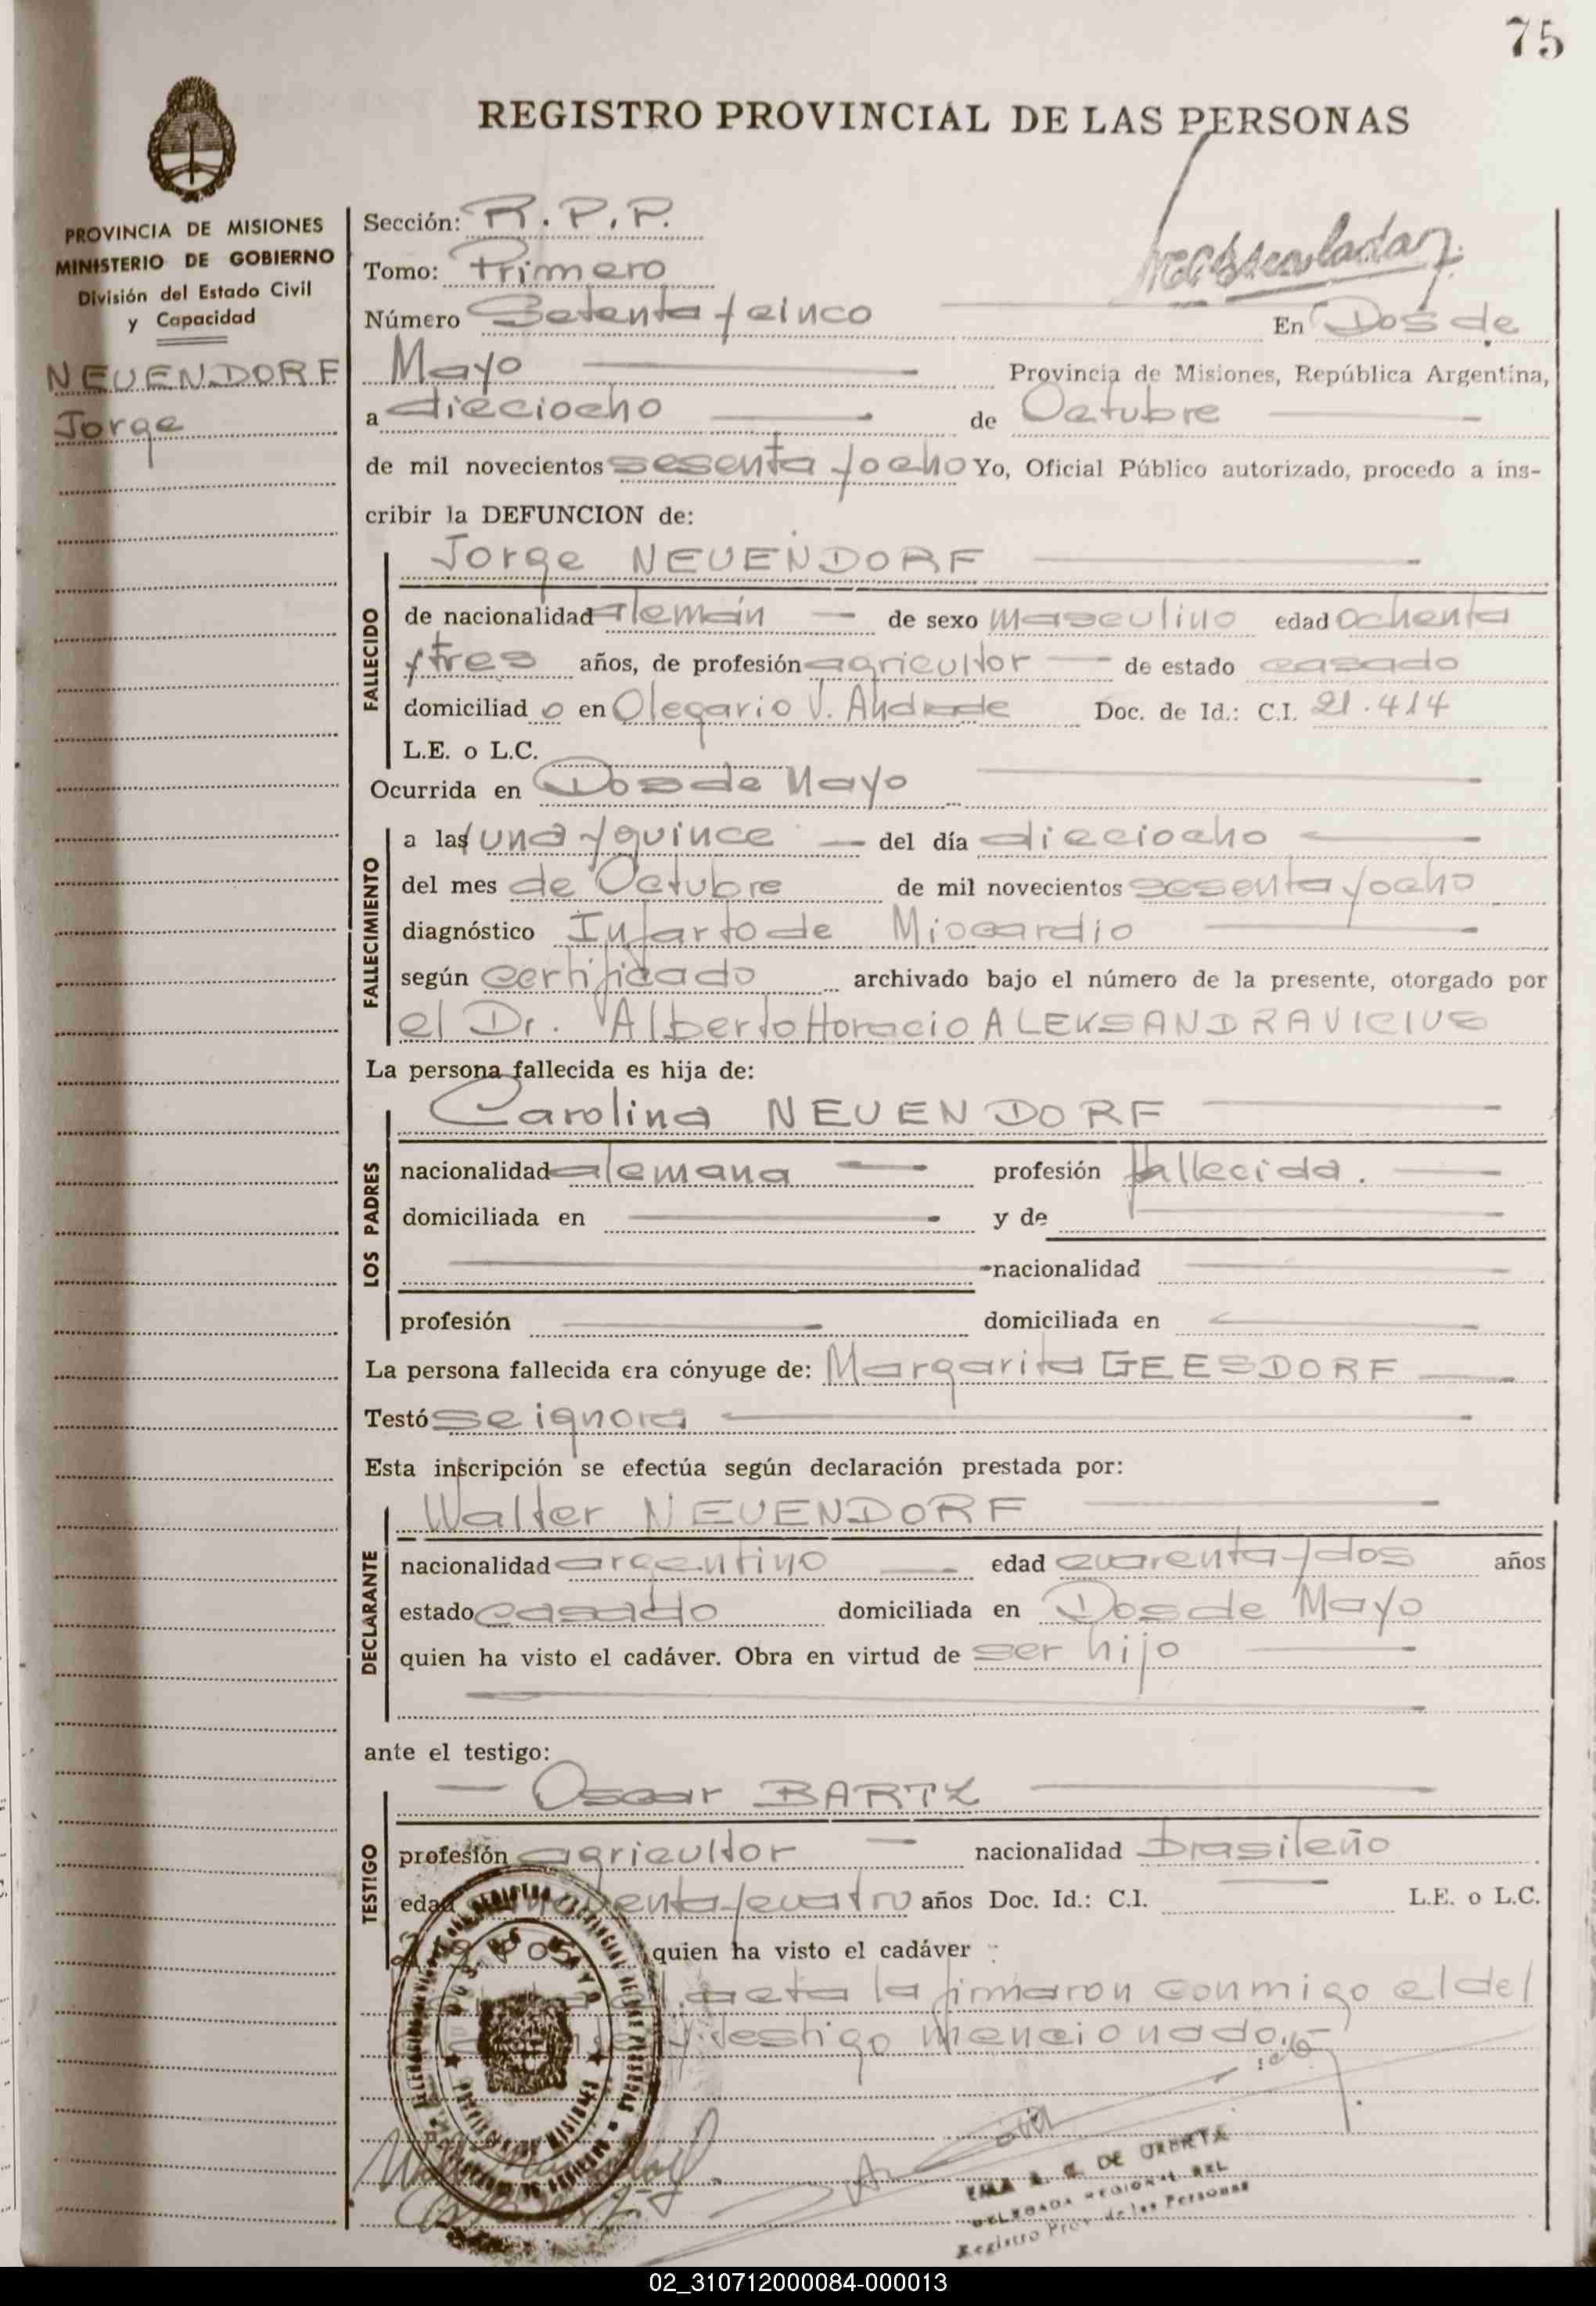 75
REGISTRO PROVINCIAL DE LAS PERSONAS
PROVINCIA DE MISIONES
MINISTERIO DE GOBIERNO
División del Estado Civil
y Capacidad
NEUENDORF
Jorge
Sección: R.P.P.
Tomo: Primero
Número Setenta y cinco En Dos de
Mayo Provincia de Misiones, República Argentina,
a dieciocho de Octubre
de mil novecientos sesenta y ocho Yo, Oficial Público autorizado, procedo a ins-
cribir la DEFUNCION de:
Jorge NEUENDORF
FALLECIDO
de nacionalidad alemán de sexo masculino edad ochenta
y tres años, de profesión agricultor de estado casado
domiciliad o en Olegario V. Andrade Doc. de Id.: C.I. 21.414
L.E. o L.C.
Ocurrida en Dos de Mayo
FALLECIMIENTO
a las una y quince del día dieciocho
del mes de Octubre de mil novecientos sesenta y ocho
diagnóstico Infarto de Miocardio
según certificado archivado bajo el número de la presente, otorgado por
el Dr. Alberto Horacio ALEKSANDRAVICIUS
La persona fallecida es hija de:
Carolina NEUENDORF
LOS PADRES
nacionalidad alemana profesión fallecida.
domiciliada en y de
nacionalidad
profesión domiciliada en
La persona fallecida era cónyuge de: Margarita GEESDORF
Testó se ignora
Esta inscripción se efectúa según declaración prestada por:
Walter NEUENDORF
DECLARANTE
nacionalidad argentino edad cuarenta y dos años
estado casado domiciliada en Dos de Mayo
quien ha visto el cadáver. Obra en virtud de ser hijo
ante el testigo:
Oscar BARTZ
TESTIGO
profesión agricultor nacionalidad brasileño
edad y cuatro años Doc. Id.: C.I. L.E. o L.C.
quien ha visto el cadáver
acta la firmaron conmigo el del
y testigo mencionado.
DE
DELEGADA REGIONAL DEL
Registro Prov. de las Personas
02_310712000084-000013